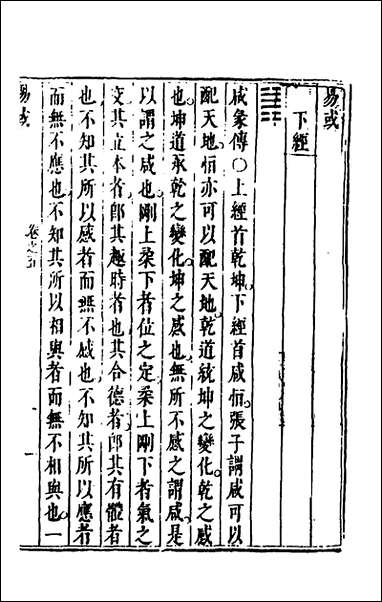 易或
下經
䷞
咸彖傳○上經首乾坤下經首咸恒張子謂咸可以
配天地恒亦可以配天地乾道統坤之變化乾之感
也坤道承乾之變化坤之感也無所不感之謂咸是
以謂之咸也剛上柔下者位之定柔上剛下者氣之
交其立本者卽其趣時者也其合德者卽其有體者
也不知其所以感者而無不感也不知其所以應者
而無不應也不知其所以相與者而無不相與也一
易或
卷之五
一